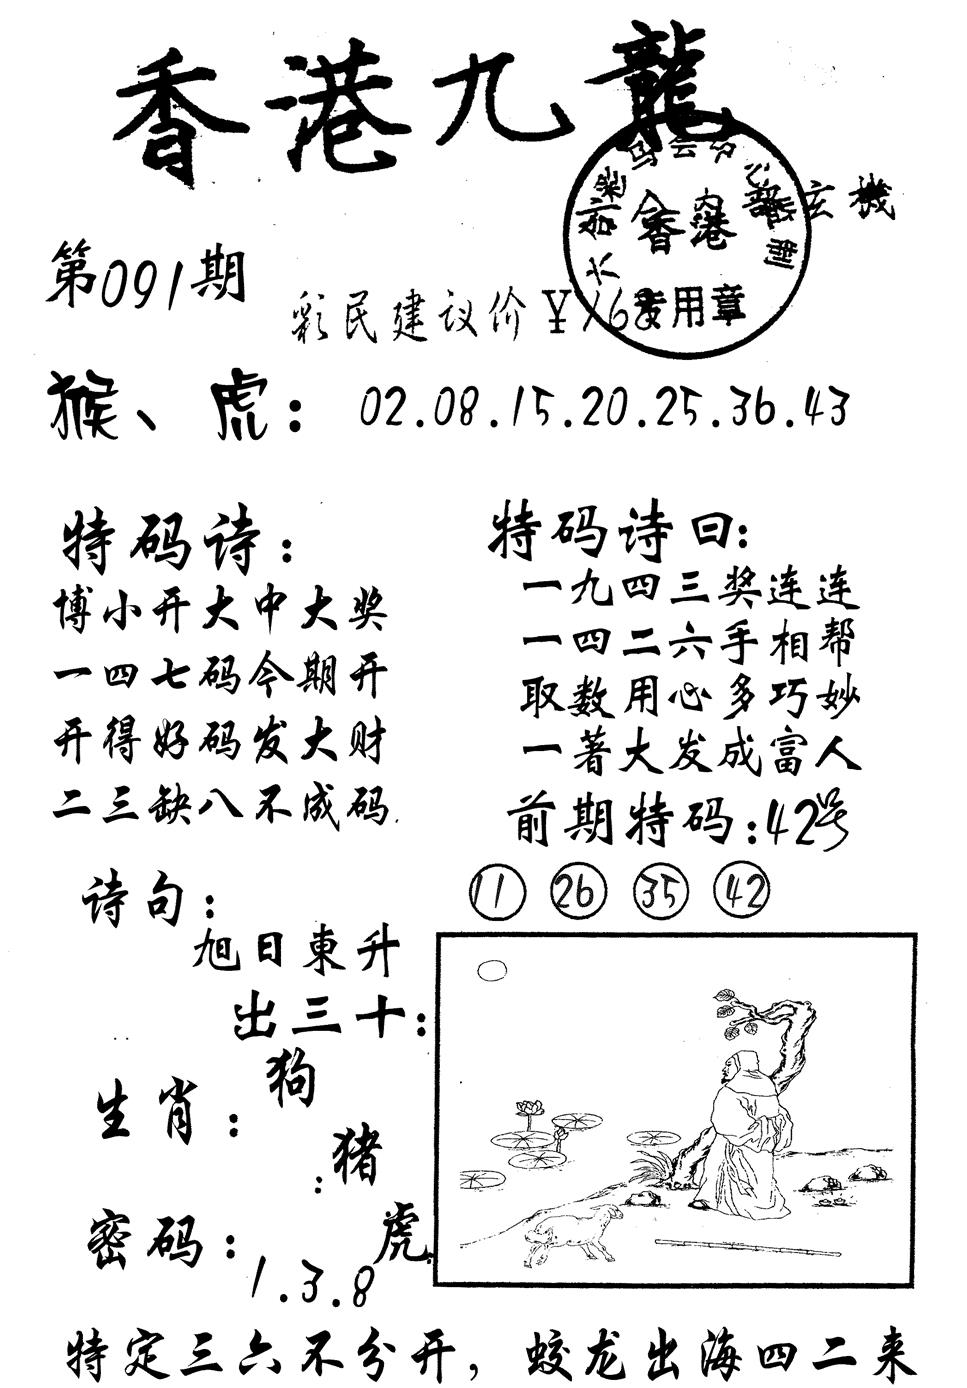 香港九龍
内部玄機
香港
专用章
第091期
彩民建议价￥168
猴、虎：02.08.15.20.25.36.43
特码诗：
博小开大中大奖
一四七码今期开
开得好码发大财
二三缺八不成码.
特码诗曰：
一九四三奖连连
一四二六手相帮
取数用心多巧妙
一著大发成富人
前期特码：42号
11 26 35 42
诗句：
旭日東升
出三十：
生肖：狗
：猪
虎
密码：1.3.8
特定三六不分开，蛟龙出海四二来